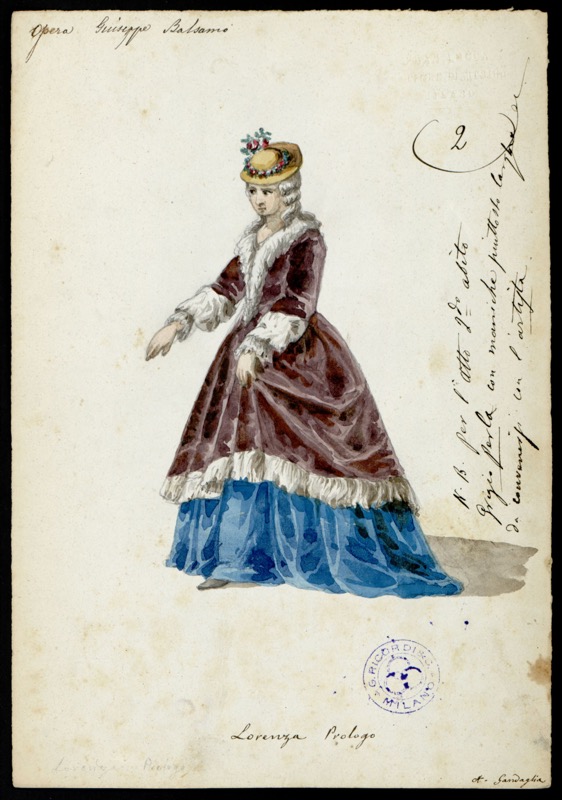 Opera Giuseppe Balsamo
2
N.B. per l'atto 2do abito
Grigio perla con maniche piuttosto larghe
da convenirsi con l'artista.
G. RICORDI & C.
MILANO
Lorenza Prologo
A. Gandaglia